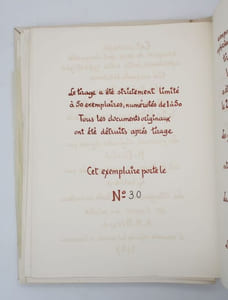 Le tirage a été strictement limité
à 50 exemplaires, numérotés de 1 à 50
Tous les documents originaux
ont été détruits après tirage
Cet exemplaire porte le
N° 30